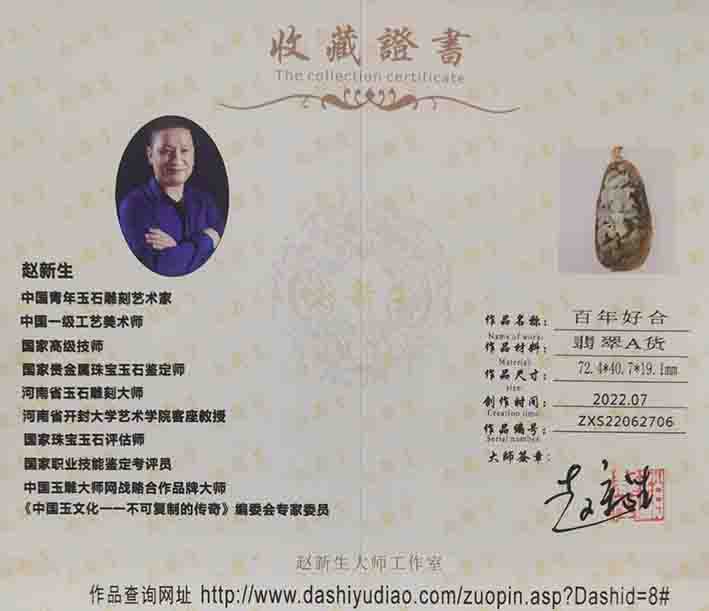 收藏證書
The collection certificate
赵新生
中国青年玉石雕刻艺术家
中国一级工艺美术师
国家高级技师
国家贵金属珠宝玉石鉴定师
河南省玉石雕刻大师
河南省开封大学艺术学院客座教授
国家珠宝玉石评估师
国家职业技能鉴定考评员
中国玉雕大师网战略合作品牌大师
《中国玉文化一一不可复制的传奇》编委会专家委员
作品名称： 百年好合
Name of work:
作品材料： 翡翠A货
Material:
作品尺寸： 72.4*40.7*19.1mm
size:
创作时间： 2022.07
Creation time:
作品编号： ZXS22062706
Serial number:
大师签章：
赵新生
赵新生大师工作室
作品查询网址 http://www.dashiyudiao.com/zuopin.asp?Dashid=8#